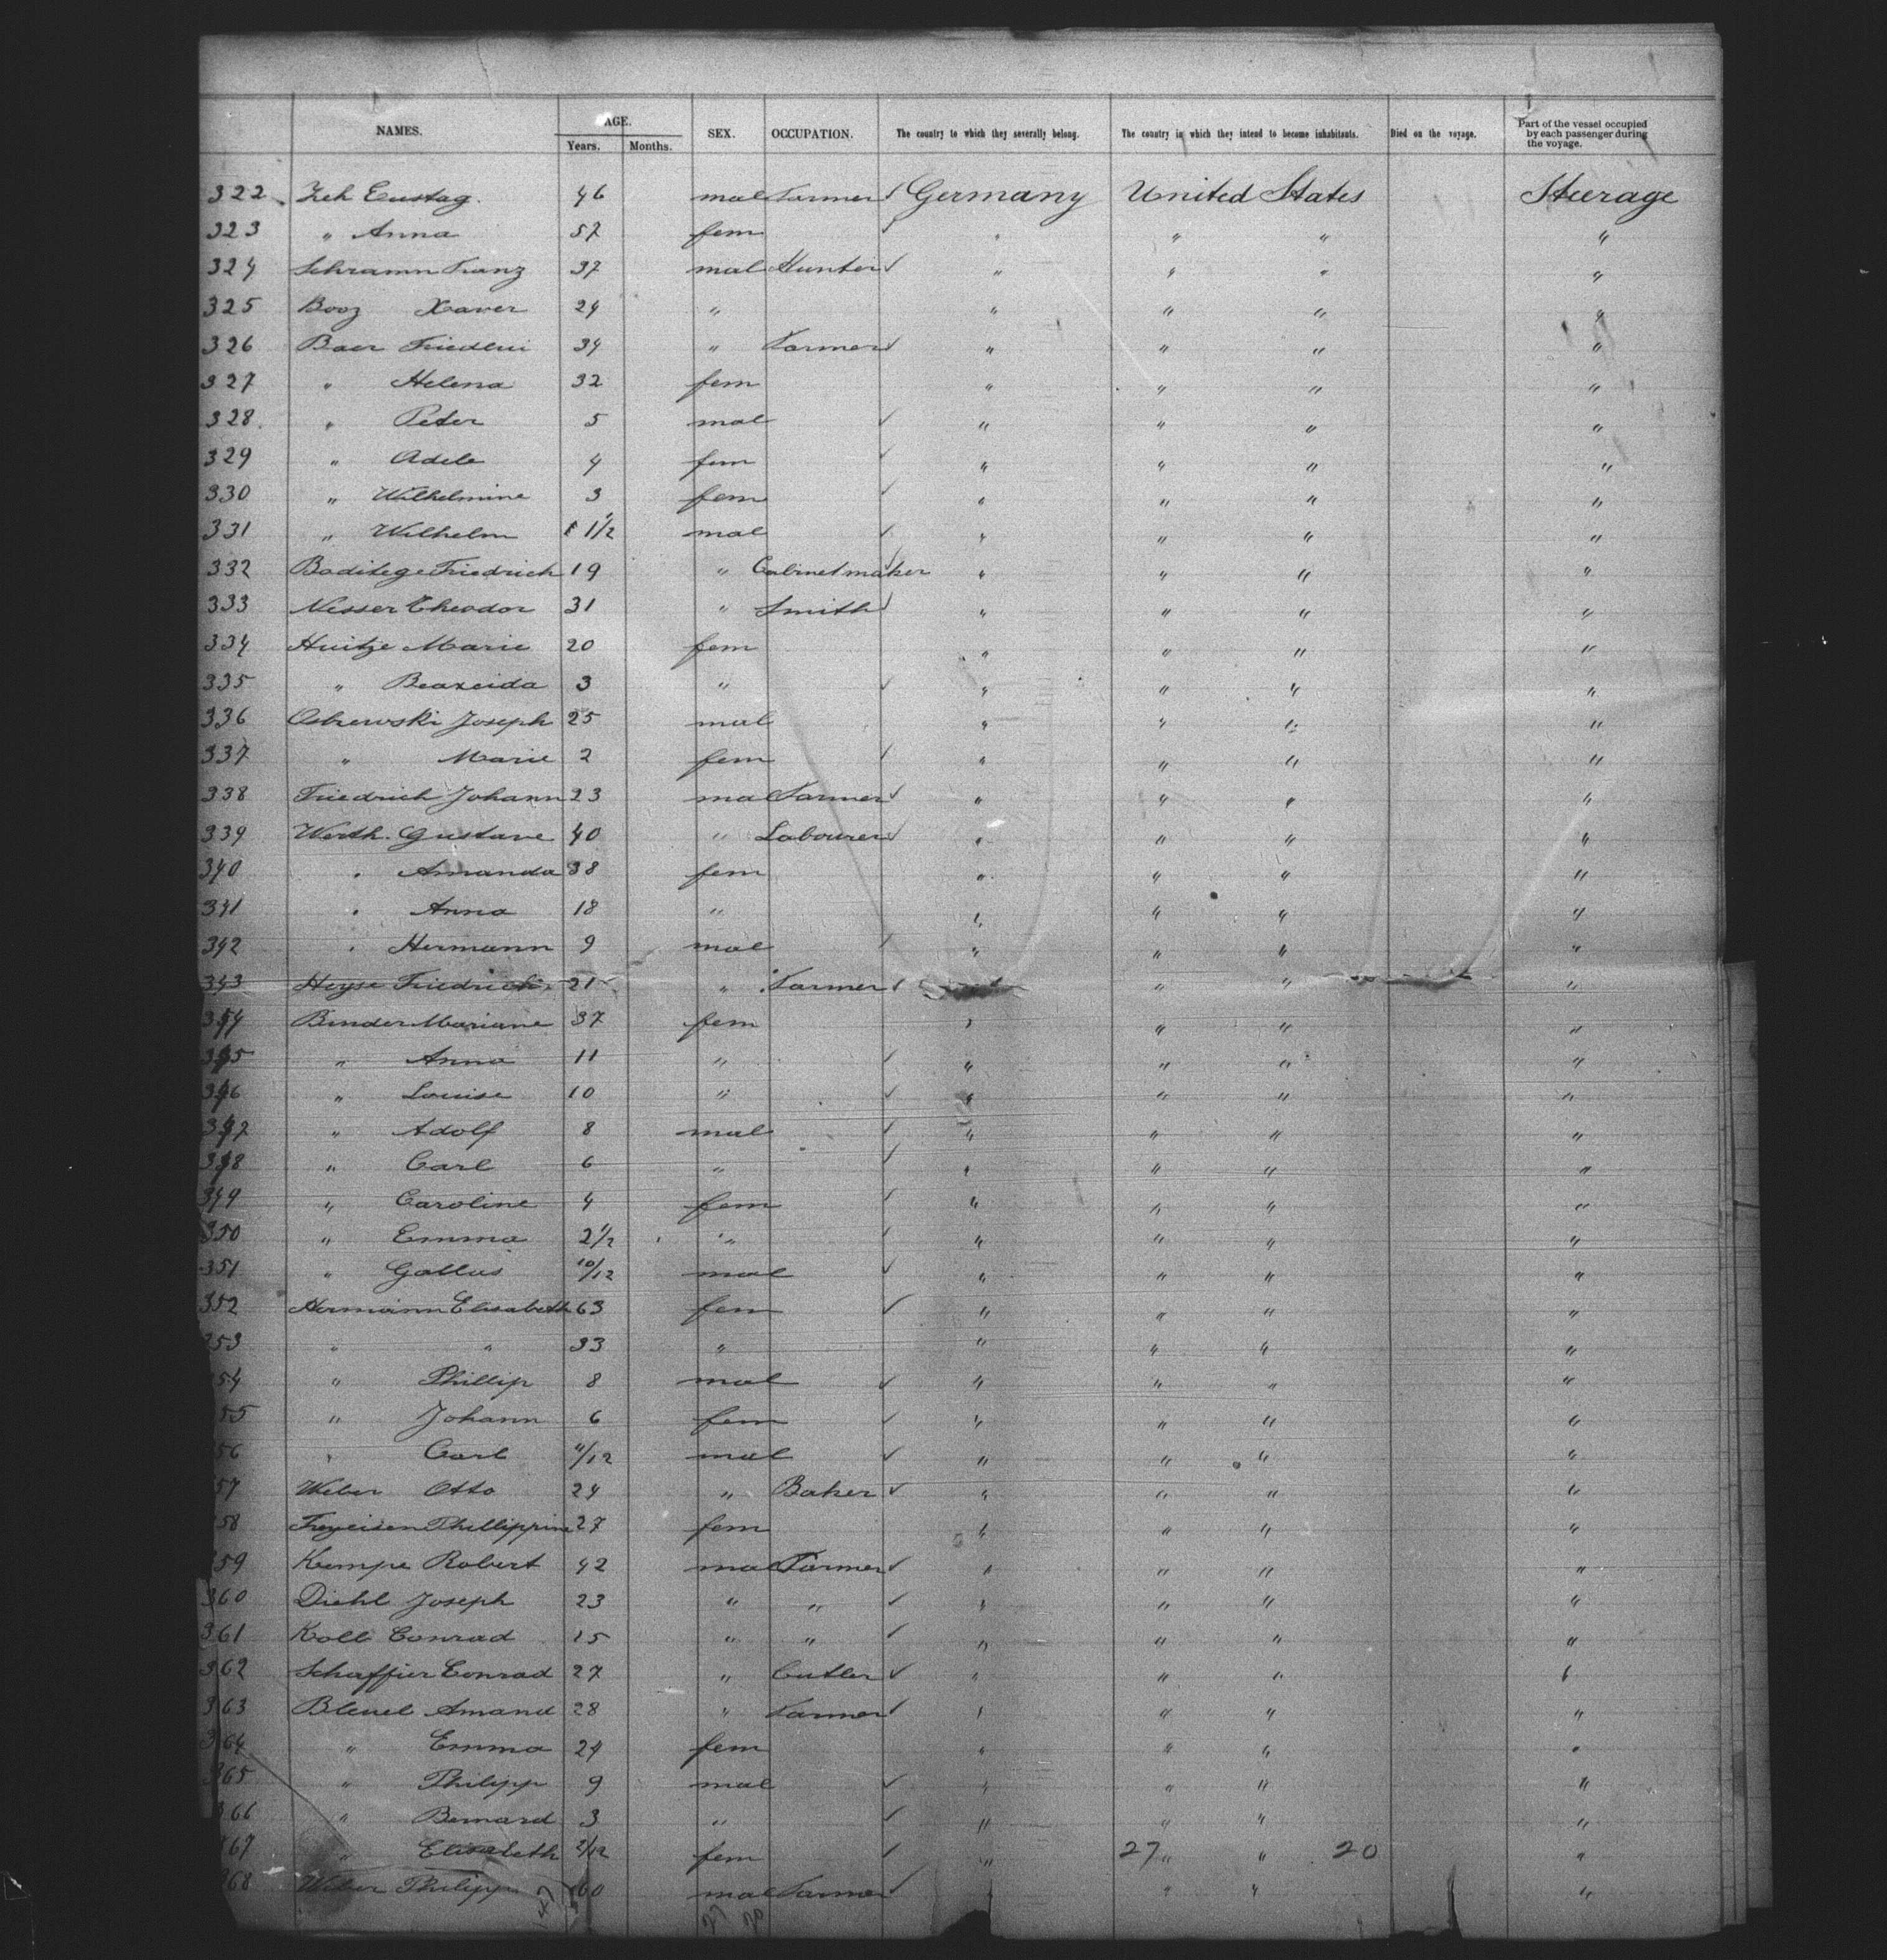 NAMES. AGE. SEX. OCCUPATION. The country to which they severally belong. The country in which they intend to become inhabitants. Died on the voyage. Part of the vessel occupied by each passenger during the voyage.
Years. Months.
322 Zeh Eustag. 46 mal Farmer ✓ Germany United States Steerage
323 " Anna 57 fem ✓ " " " "
324 Schramm Franz 37 mal Hunter ✓ " " " "
325 Booz Xaver 24 " " " " "
326 Baer 34 " Farmer ✓ " " " "
327 " Helena 32 fem " " " "
328. " Peter 5 mal ✓ " " " "
329 " Adele 4 fem ✓ " " " "
330 " Wilhelmine 3 fem ✓ " " " "
331 " Wilhelm 1 1/2 mal ✓ " " " "
332 Friedrich 19 " Cabinetmaker ✓ " " " "
333 Nesser Theodor 31 " Smith ✓ " " " "
334 Marie 20 fem " " " "
335 " 3 " ✓ " " " "
336 Joseph 25 mal " " " "
337 " Marie 2 fem ✓ " " " "
338 Friedrich Johann 23 mal Farmer ✓ " " " "
339 Werth. Gustave 40 " Labourer ✓ " " " "
340 " Amanda 38 fem " " " "
341 " Anna 18 " " " " "
342 " Hermann 9 mal ✓ " " " "
343 Heyse Friedrich 21 " Farmer ✓ " " "
344 Binder Mariane 37 fem " " " "
345 " Anna 11 " ✓ " " " "
346 " Louise 10 " ✓ " " " "
347 " Adolf 8 mal ✓ " " " "
348 " Carl 6 " ✓ " " " "
349 " Caroline 4 fem ✓ " " " "
350 " Emma 2 1/2 " ✓ " " " "
351 " Gallus 10/12 mal ✓ " " " "
352 Hermann Elisabeth 63 fem ✓ " " " "
353 " " 33 " " " " "
54 " Phillip 8 mal ✓ " " " "
55 " Johann 6 fem ✓ " " " "
56 " Carl 11/12 mal ✓ " " " "
57 Weber Otto 24 " Baker ✓ " " " "
58 Freyeisen Phillippine 27 fem " " " "
359 Kempe Robert 42 mal Farmer ✓ " " " "
360 Diehl Joseph 23 " " ✓ " " " "
361 Koll Conrad 15 " " ✓ " " " "
362 Conrad 27 " Cutler ✓ " " " "
363 Bleuel Amand 28 " Farmer ✓ " " " "
364 " Emma 24 fem " " " "
365 " Philipp 9 mal ✓ " " " "
366 " Bernard 3 " ✓ " " " "
367 " Elisabeth 2/12 fem ✓ " 27 " " 20 "
368 Weber Philipp 60 mal Farmer ✓ " " "